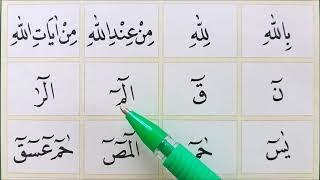 بِاللّٰهِ لِلّٰهِ مِنْ عِنْدِ اللّٰهِ مِنْ اٰيَاتِ اللّٰهِ
نٓ قٓ الٓمّٓ الٓرٰ
يٰسٓ حٰمٓ الٓمّٓصٓ حٰمٓ عٓسٓقٓ